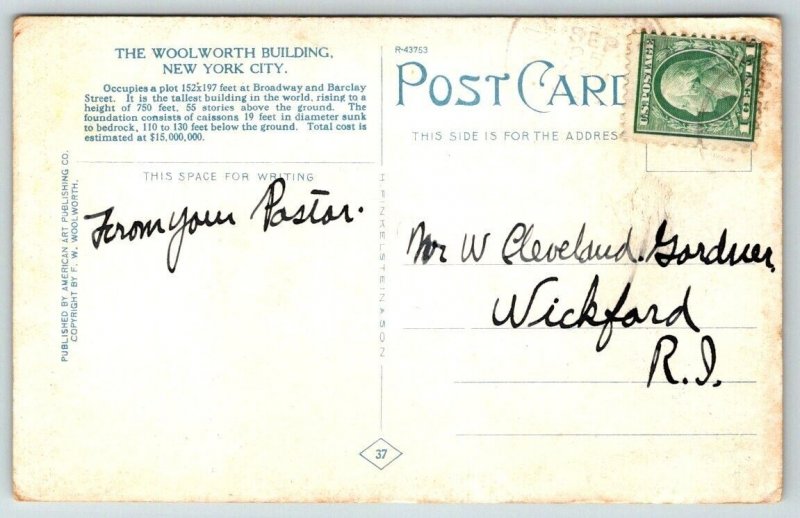 THE WOOLWORTH BUILDING,
NEW YORK CITY.
Occupies a plot 152x197 feet at Broadway and Barclay
Street. It is the tallest building in the world, rising to a
height of 750 feet, 55 stories above the ground. The
foundation consists of caissons 19 feet in diameter sunk
to bedrock, 110 to 130 feet below the ground. Total cost is
estimated at $15,000,000.
THIS SPACE FOR WRITING
From your Pastor.
PUBLISHED BY AMERICAN ART PUBLISHING CO.
COPYRIGHT BY F. W. WOOLWORTH.
H FINKELSTEIN & SON
37
R-43753
POST CARD
THIS SIDE IS FOR THE ADDRESS
SEP
U.S. POSTAGE
1 CENT 1
Mr W Cleveland. Gardner,
Wickford
R.I.